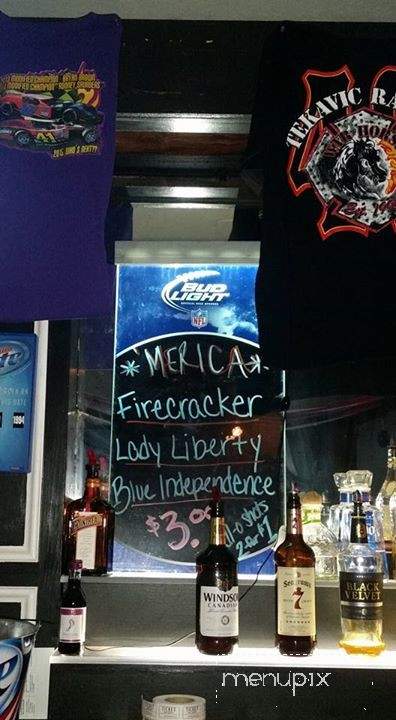 MODIFIED CHAMPION
TEKAVIC RA
BUD
LIGHT
NFL
*'MERICA*
Firecracker
Lady Liberty
Blue Independence
$3.00
Jell-o shots
2 for $1
1994
WINDSOR
CANADIAN
Seagram's
7
BLACK
VELVET
TICKET
menupix